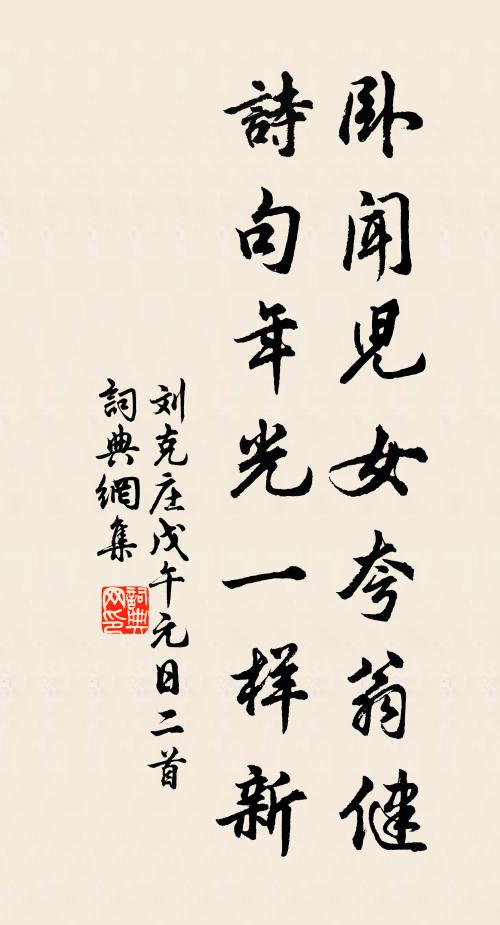 卧闻児女夸翁健
詩句年光一样新
刘克庄戊午元日二首
詞典網集
詞典网印